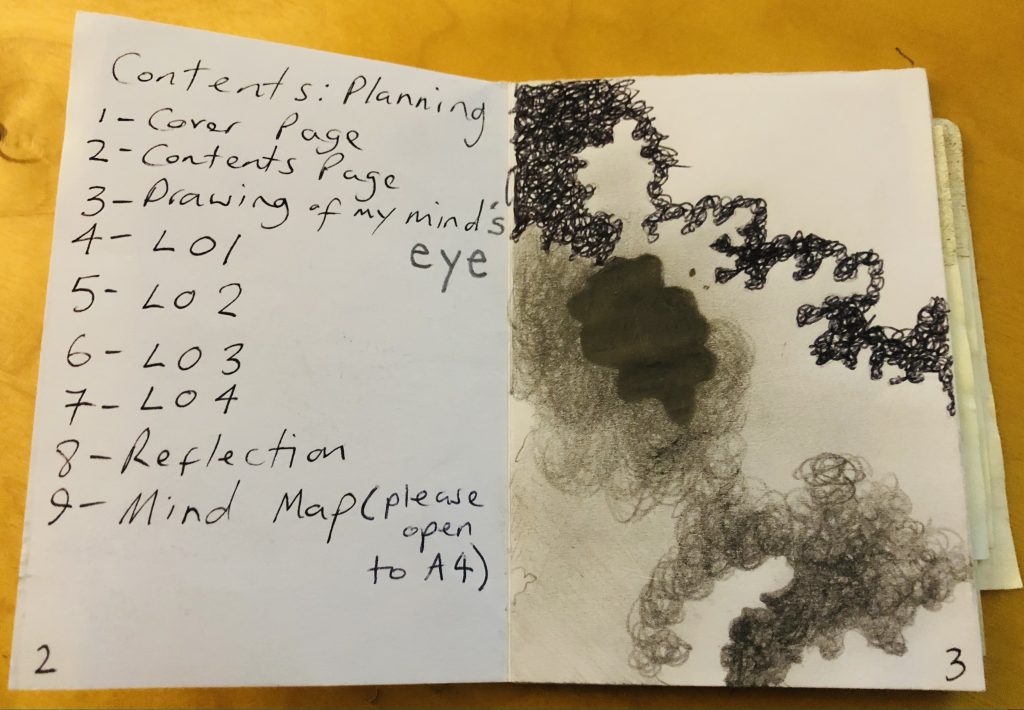 Contents: Planning
1- Cover Page
2- Contents Page
3- Drawing of my mind's
eye
4- LO1
5- LO2
6- LO3
7- LO4
8- Reflection
9- Mind Map (please
open
to A4)
2
3